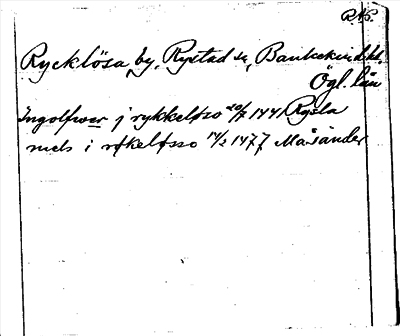 R.N.
Rycklösa, by, Rystad sn, Bankekinds hd,
Ögl. län
Ingolfwer j rykkeløso 20/7 1441 Rysla
niels i røkeløsso 14/2 1477 Måsänder